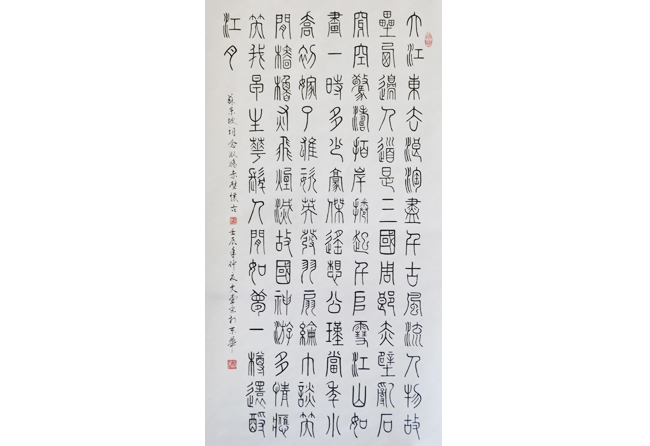 大江東去浪淘盡千古風流人物故
壘西邊人道是三國周郎赤壁亂石
穿空驚濤拍岸捲起千堆雪江山如
畫一時多少豪傑遙想公瑾當年小
喬初嫁了雄姿英發羽扇綸巾談笑
間檣櫓灰飛煙滅故國神游多情應
笑我早生華髮人間如夢一樽還酹
江月
蘇東坡詞念奴嬌赤壁懷古
壬辰年仲夏